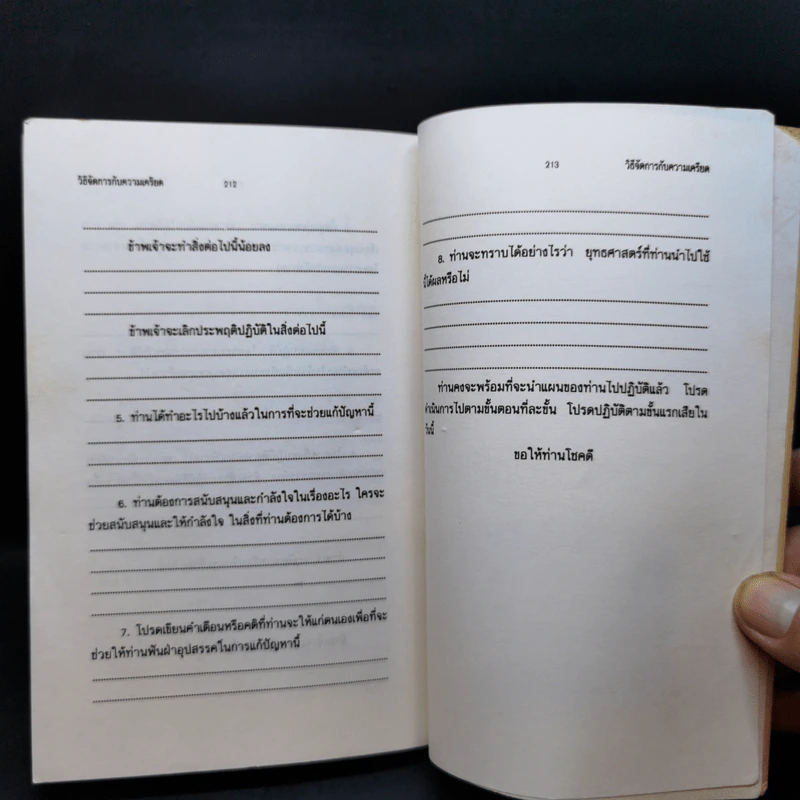 วิธีจัดการกับความเครียด 212
ข้าพเจ้าจะทำสิ่งต่อไปนี้น้อยลง
ข้าพเจ้าจะเลิกประพฤติปฏิบัติในสิ่งต่อไปนี้
5. ท่านได้ทำอะไรไปบ้างแล้วในการที่จะช่วยแก้ปัญหานี้
6. ท่านต้องการสนับสนุนและกำลังใจในเรื่องอะไร ใครจะ
ช่วยสนับสนุนและให้กำลังใจ ในสิ่งที่ท่านต้องการได้บ้าง
7. โปรดเขียนคำเตือนหรือคติที่ท่านจะให้แก่ตนเองเพื่อที่จะ
ช่วยให้ท่านฟันฝ่าอุปสรรคในการแก้ปัญหานี้
213 วิธีจัดการกับความเครียด
8. ท่านจะทราบได้อย่างไรว่า ยุทธศาสตร์ที่ท่านนำไปใช้
นี้ได้ผลหรือไม่
ท่านคงจะพร้อมที่จะนำแผนของท่านไปปฏิบัติแล้ว โปรด
ดำเนินการไปตามขั้นตอนที่ละขั้น โปรดปฏิบัติตามขั้นแรกเสียใน
วันนี้
ขอให้ท่านโชคดี